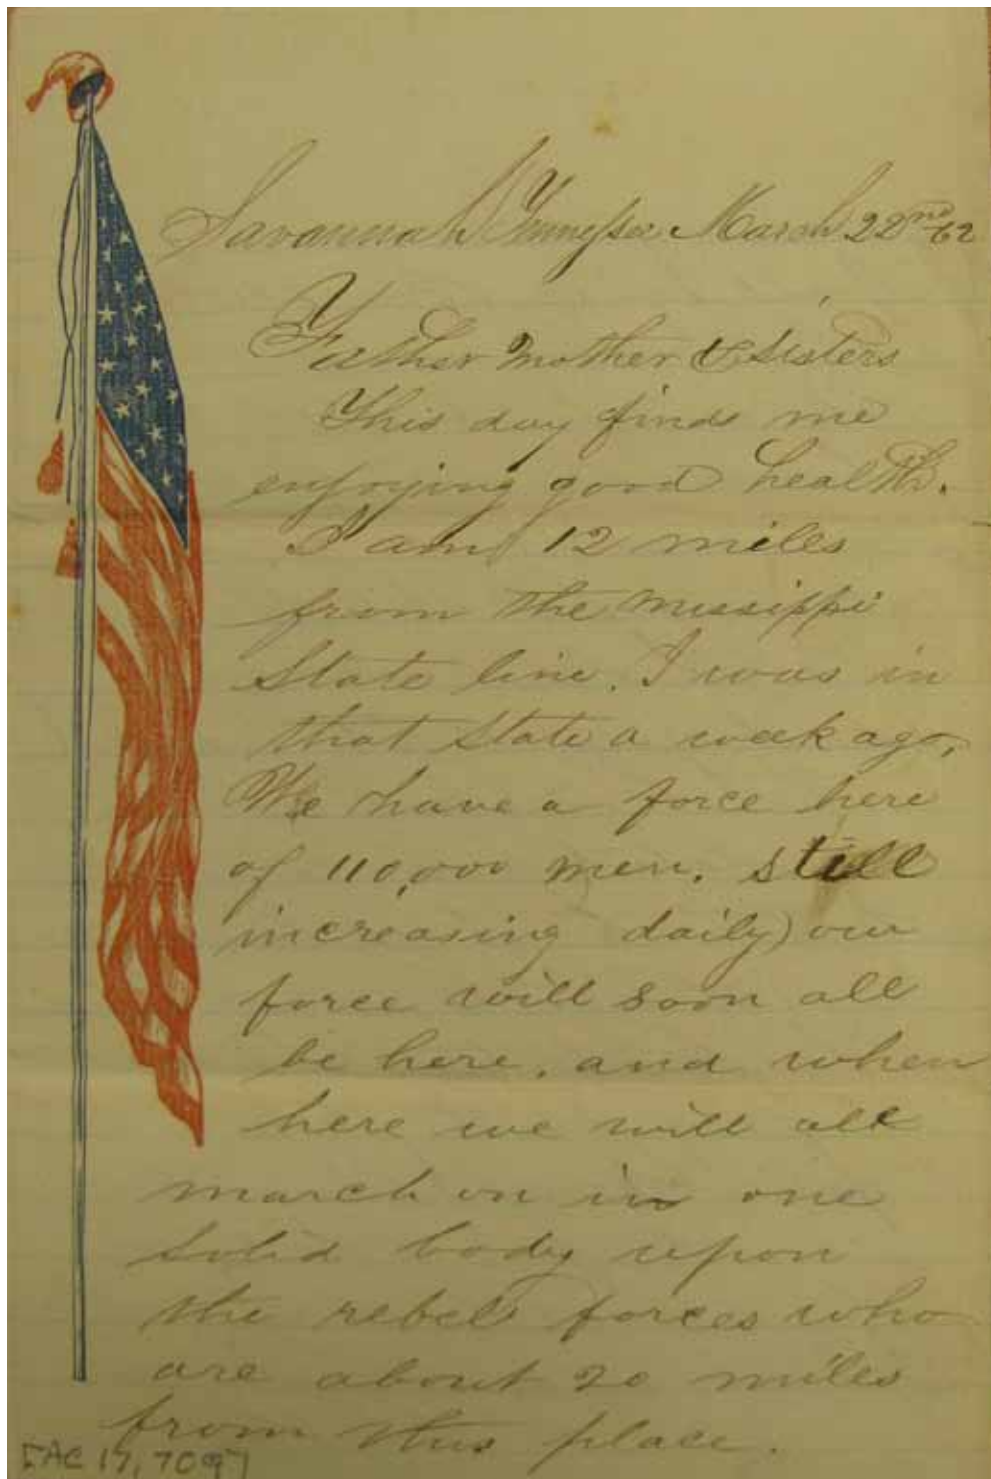 Savannah Tennessee March 22nd 62
Father Mother & Sisters
This day finds me
enjoying good health.
I am 12 miles
from the Missippi
State line. I was in
that State a week ago,
We have a force here
of 110,000 men. still
increasing daily) our
force will soon all
be here, and when
here we will all
march on in one
solid body upon
the rebel forces who
are about 20 miles
from this place.
[AC 17,709]